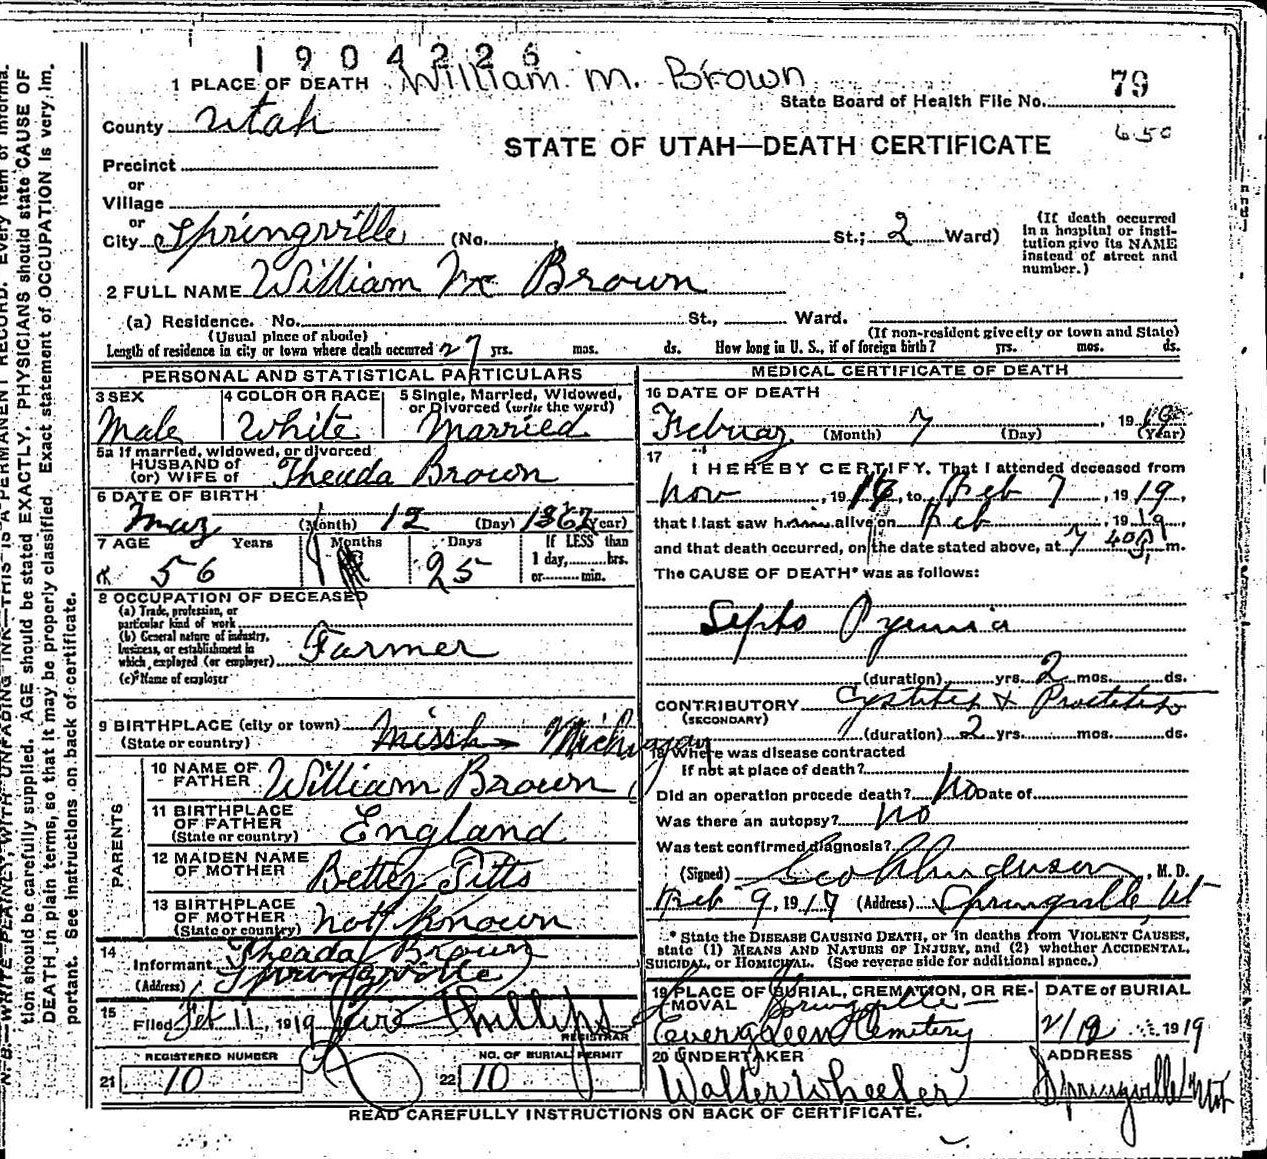 1904226
1 PLACE OF DEATH William. M. Brown
State Board of Health File No. 79
650
County Utah
STATE OF UTAH—DEATH CERTIFICATE
Precinct
or
Village
or
City Springville (No. , St.; 2 Ward)
(If death occurred in a hospital or insti-
tution give its NAME
instead of street and
number.)
2 FULL NAME William M Brown
(a) Residence. No. St., Ward.
(Usual place of abode) (If non-resident give city or town and State)
Length of residence in city or town where death occurred 27 yrs. mos. ds. How long in U. S., if of foreign birth? yrs. mos. ds.
PERSONAL AND STATISTICAL PARTICULARS
3 SEX 4 COLOR OR RACE 5 Single, Married, Widowed,
or Divorced (write the word)
Male White Married
5a If married, widowed, or divorced
HUSBAND of
(or) WIFE of Theada Brown
6 DATE OF BIRTH
(Month) 12 (Day) 1862 (Year)
7 AGE Years Months Days If LESS than
1 day, hrs.
or min.
56 25
8 OCCUPATION OF DECEASED
(a) Trade, profession, or
particular kind of work
(b) General nature of industry,
business, or establishment in
which employed (or employer) Farmer
(c) Name of employer
9 BIRTHPLACE (city or town)
(State or country) Michigan
PARENTS
10 NAME OF
FATHER William Brown
11 BIRTHPLACE
OF FATHER
(State or country) England
12 MAIDEN NAME
OF MOTHER Bettey Pitts
13 BIRTHPLACE
OF MOTHER
(State or country) not known
14
Informant Theada Brown
(Address) Springville
15
Filed Feb 11, 1919 Phillips
REGISTRAR
REGISTERED NUMBER NO. OF BURIAL PERMIT
21 10 22 10
MEDICAL CERTIFICATE OF DEATH
16 DATE OF DEATH
Februay 7 , 1919
(Month) (Day) (Year)
17
I HEREBY CERTIFY, That I attended deceased from
Nov , 1918, to Feb 7 , 1919,
that I last saw him alive on Feb , 1919
and that death occurred, on the date stated above, at 7 40 m.
The CAUSE OF DEATH* was as follows:
Septo Pyemia
(duration) yrs. 2 mos. ds.
CONTRIBUTORY Cystites & Prostetes
(SECONDARY)
(duration) 2 yrs. mos. ds.
18 Where was disease contracted
If not at place of death?
Did an operation precede death? No Date of
Was there an autopsy? No
Was test confirmed diagnosis?
(Signed) Anderson, M. D.
Feb 9, 1919 (Address) Springville, Ut
* State the DISEASE CAUSING DEATH, or in deaths from VIOLENT CAUSES,
state (1) MEANS AND NATURE OF INJURY, and (2) whether ACCIDENTAL,
SUICIDAL, or HOMICIDAL. (See reverse side for additional space.)
19 PLACE OF BURIAL, CREMATION, OR RE-
MOVAL Springville
Evergreen Cemetery
DATE OF BURIAL
1919
20 UNDERTAKER
Walter Wheeler
ADDRESS
Springville Ut
READ CAREFULLY INSTRUCTIONS ON BACK OF CERTIFICATE.
N. B.—WRITE PLAINLY, WITH UNFADING INK—THIS IS A PERMANENT RECORD. Every item of informa-
tion should be carefully supplied. AGE should be stated EXACTLY. PHYSICIANS should state CAUSE OF
DEATH in plain terms, so that it may be properly classified. Exact statement of OCCUPATION is very im-
portant. See instructions on back of certificate.